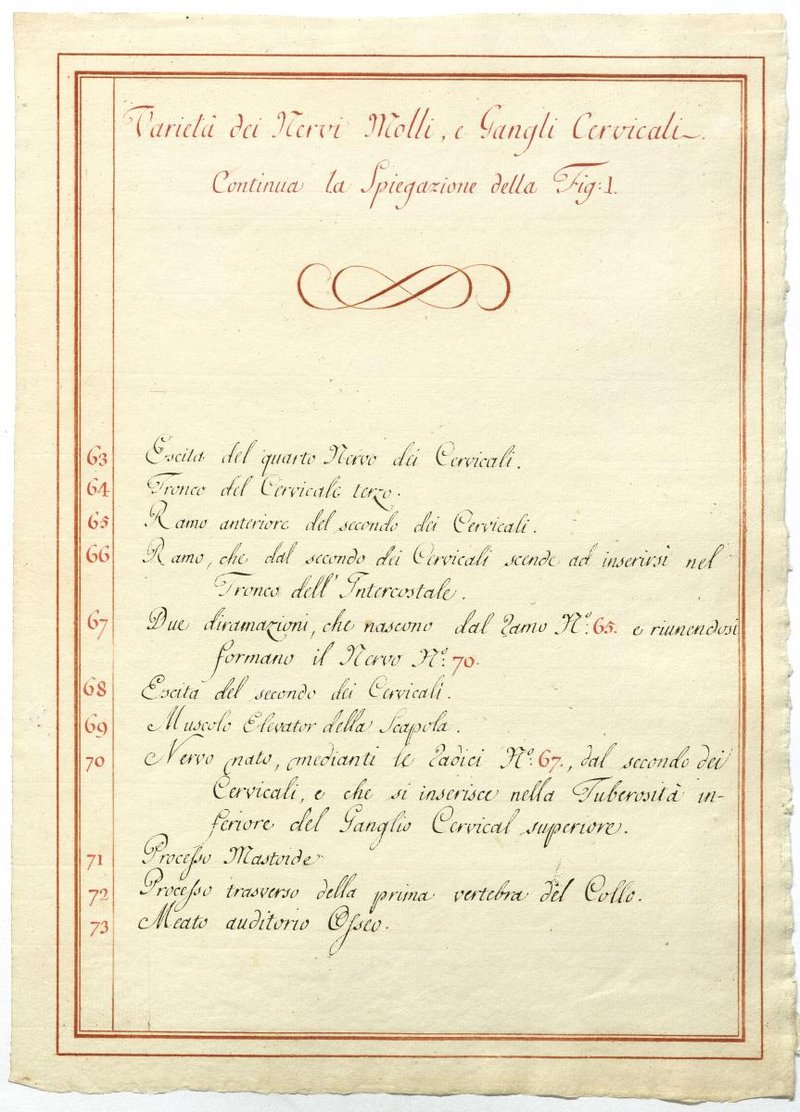 Varietà dei Nervi Molli, e Gangli Cervicali.
Continua la Spiegazione della Fig: 1.
63 Escita del quarto Nervo dei Cervicali.
64 Tronco del Cervicale terzo.
65 Ramo anteriore del secondo dei Cervicali.
66 Ramo, che dal secondo dei Cervicali scende ad inserirsi nel
Tronco dell'Intercostale.
67 Due diramazioni, che nascono dal ramo Nº: 65. e riunendosi
formano il Nervo Nº: 70.
68 Escita del secondo dei Cervicali.
69 Muscolo Elevator della Scapola.
70 Nervo nato, medianti le radici Nº: 67., dal secondo dei
Cervicali, e che si inserisce nella Tuberosità in-
feriore del Ganglio Cervical superiore.
71 Processo Mastoide
72 Processo trasverso della prima vertebra del Collo.
73 Meato auditorio Osseo.